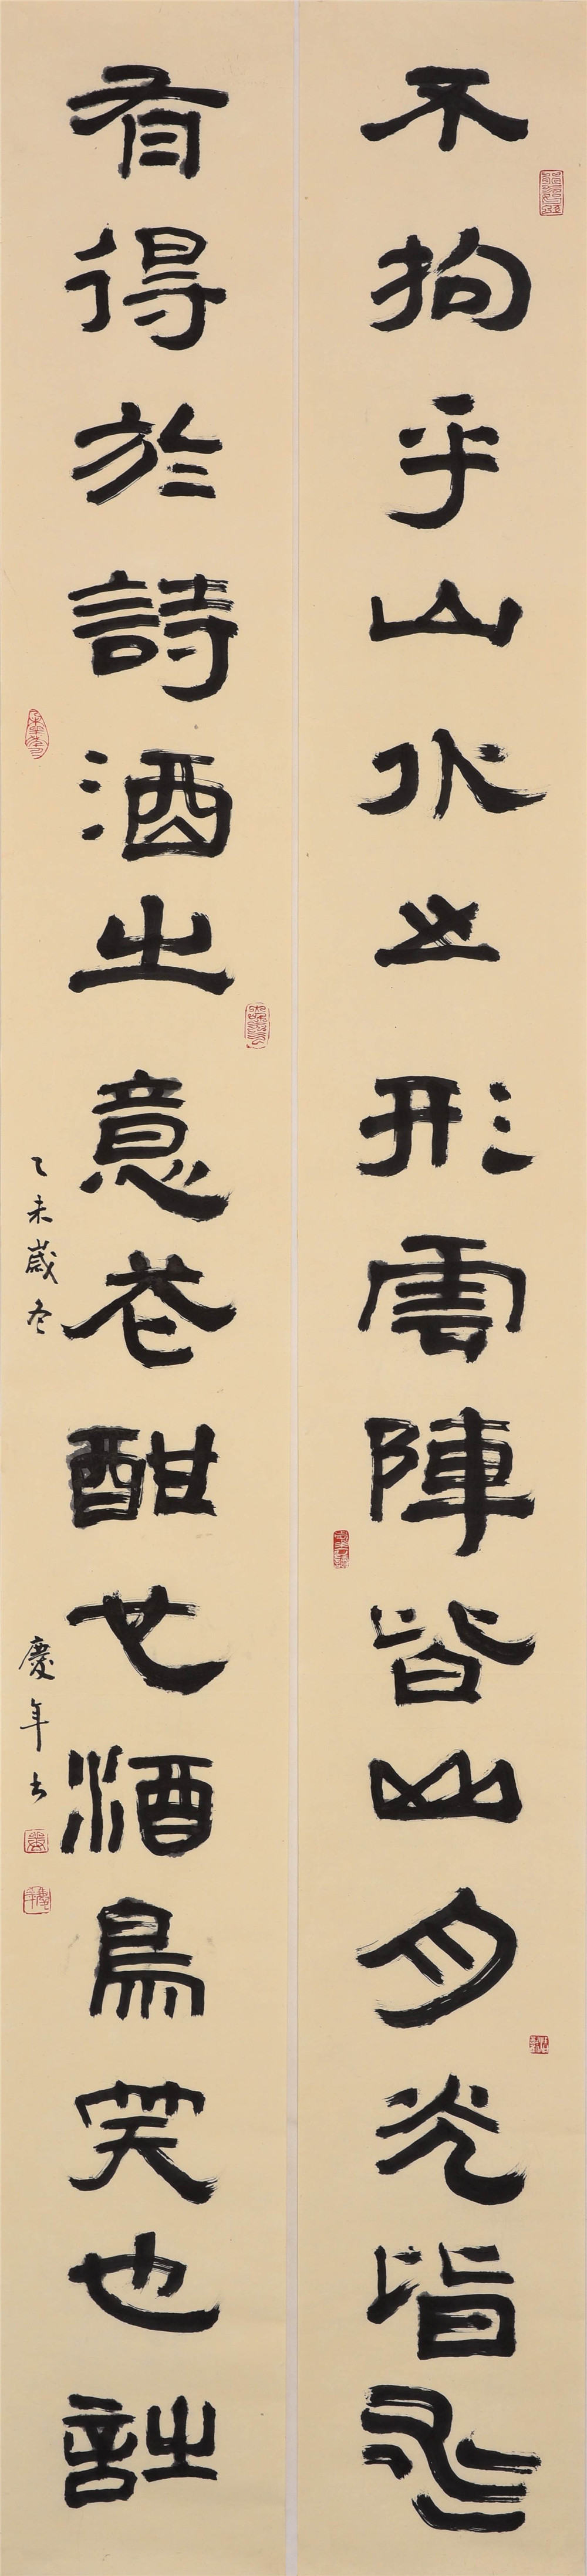 不拘乎山水之形雲陣皆山月光皆水
有得於詩酒之意花酣也酒鳥笑也詩
乙未歲冬 慶年书